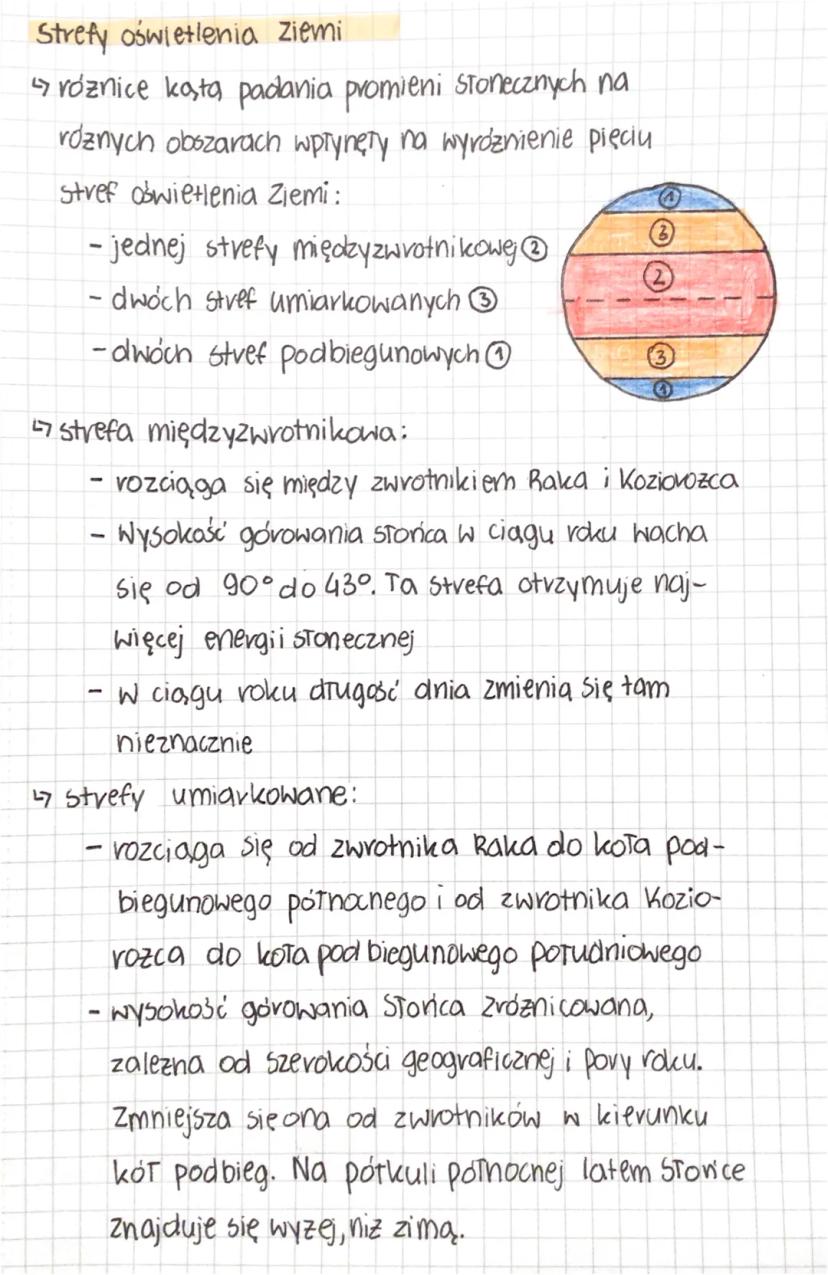 Strefy oświetlenia Ziemi
↳ różnice kąta padania promieni słonecznych na
różnych obszarach wpłynęły na wyróżnienie pięciu
stref oświetlenia Ziemi:
- jednej strefy międzyzwrotnikowej ②
- dwóch stref umiarkowanych ③
- dwóch stref podbiegunowych ①
①
③
②
③
①
↳ strefa międzyzwrotnikowa:
- rozciąga się między zwrotnikiem Raka i Koziorożca
- Wysokość górowania słońca w ciągu roku wacha
się od 90° do 43°. Ta strefa otrzymuje naj-
więcej energii słonecznej
- W ciągu roku długość dnia zmienia się tam
nieznacznie
↳ strefy umiarkowane:
- rozciąga się od zwrotnika Raka do koła pod-
biegunowego północnego i od zwrotnika Kozio-
rożca do koła podbiegunowego południowego
- wysokość górowania Słońca zróżnicowana,
zależna od szerokości geograficznej i pory roku.
Zmniejsza się ona od zwrotników w kierunku
kół podbieg. Na półkuli północnej latem Słońce
znajduje się wyżej, niż zimą.